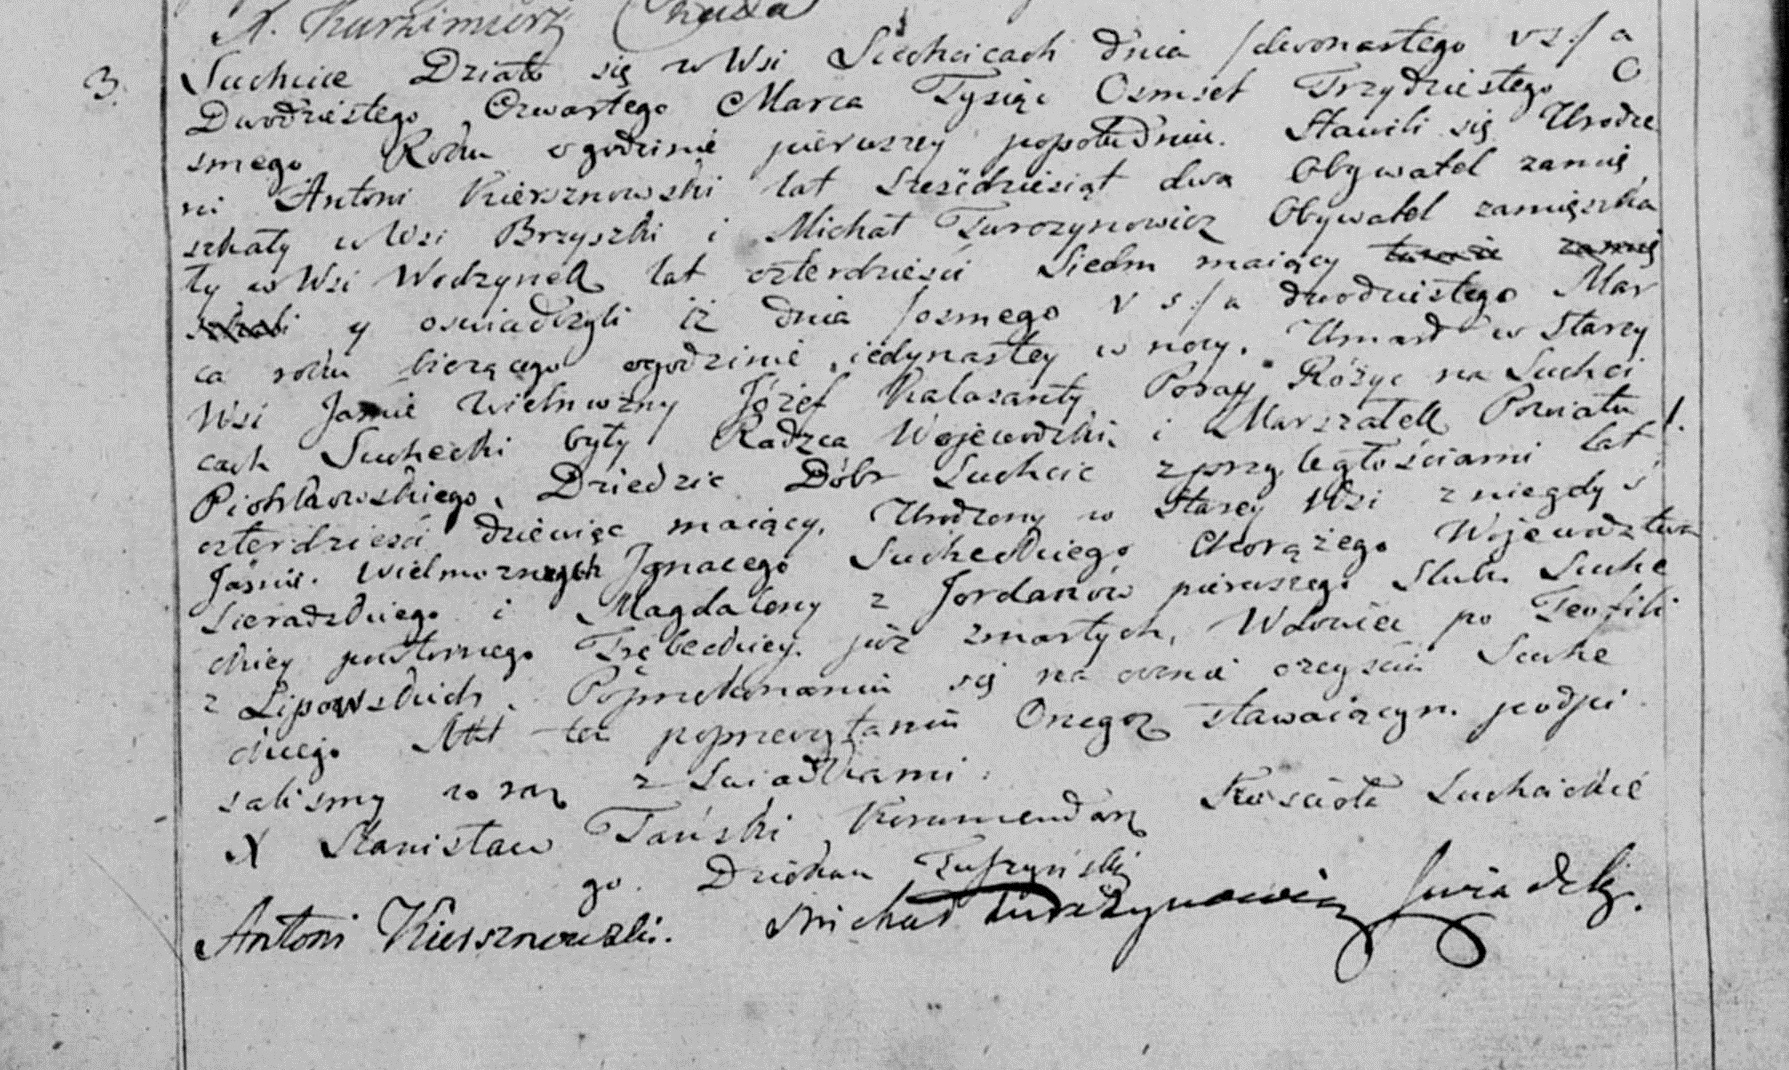 X. Kazimierz Chuda
3.
Suchcice Działo się w Wsi Suchcicach dnia /dwonastego v s:/ a
Dwodziestego Czwartego Marca Tysiąc Osmset Trzydziestego O
smego Roku ogodzinie pierwszey popołudniu. Stawili się Urodze
ni Antoni Kiersznowski lat sześcdziesiąt dwa Obywatel zamię
szkały w Wsi Brzyszki i Michał Turczynowicz Obywatel zamięszka
ły w Wsi Wodzynek lat czterdzieści Siedm maiący
y oswiadczyli iż dnia /osmego v s:/ a dwodziestego Mar
ca roku bierzącego ogodzinie iedynastey w nocy. Umarł w Starey
Wsi Jaśnie Wielmożny Józef Kalasanty Poray Różyc na Suchci
cach Suchecki były Radzca Wojewodzki i Marszałek Powiatu
Piotrkowskiego, Dziedzic Dóbr Suchcic zprzyległościami lat
czterdzieści dziewięc maiący, Urodzony w Starey Wsi z niegdyś
Jaśnie Wielmożnych Ignacego Sucheckiego Chorążego Wojewodztwa
Sieradzkiego i Magdaleny z Jordanów pierwszego Slubu Suche
ckiey powtornego Trębeckiey już zmarłych, Wdowiec po Teofili
z Lipowskich. Poprzekonaniu się na ocznie ozeyściu Suche
ckiego Akt ten poprzeczytaniu Onegoż stawaiącym podpi
salismy w raz z Swiadkami.
X Stanisław Tański Kommendarz Kościoła Suchcickie
go. Dziekan Tuszyński
Antoni Kiersznowski. Michał Turczynowicz Swiadek.